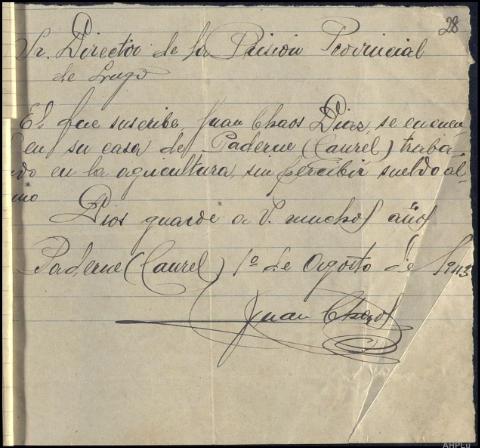 28
Sr. Director de la Prision Provincial
de Lugo
El que suscribe, Juan Chaos Diaz, se encuen
en su casa de Paderne (Caurel) traba
ndo en la agricultura, sin percibir sueldo al
uno
Dios guarde a V. muchos años
Paderne (Caurel) 1º de Agosto de 1943
Juan Chaos
AHPLu